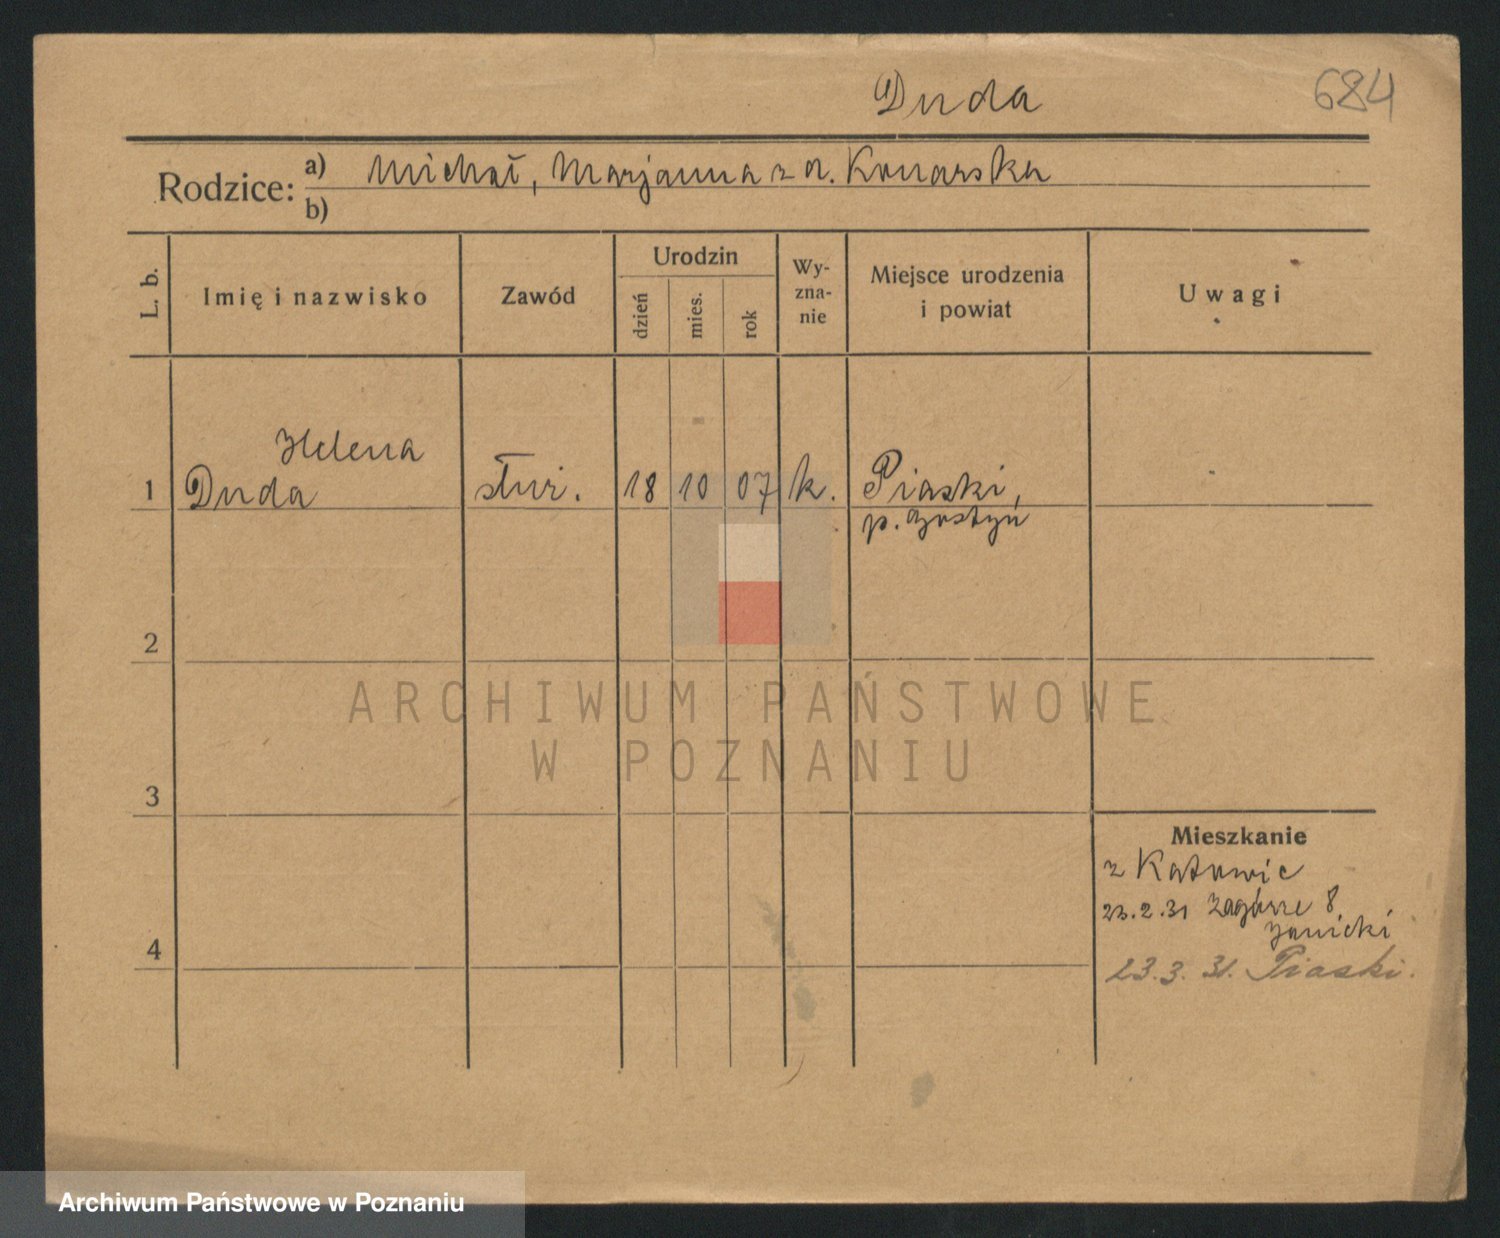 Duda
684
Rodzice: a) Michał, Marjanna z d. Konarska
b)
L. b.
Imię i nazwisko
Zawód
Urodzin
dzień
mies.
rok
Wy-
zna-
nie
Miejsce urodzenia
i powiat
Uwagi
Helena
1 Duda służ. 18 10 07 k. Piaski,
p. Gostyń
2
3
4
ARCHIWUM PAŃSTWOWE
W POZNANIU
Mieszkanie
z Katowic
23.2.31 Zagórze 8
Janicki
23.3.31. Piaski.
Archiwum Państwowe w Poznaniu